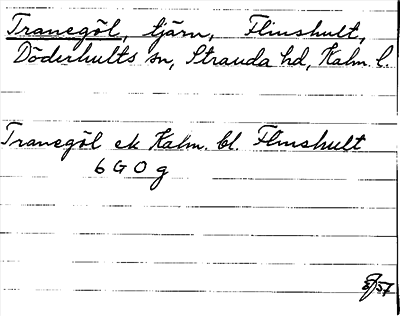 Tranegöl, tjärn, Flinshult,
Döderhults sn, Stranda hd, Kalm. l.
Tranegöl ek Kalm. bl. Flinshult
6 G 0 g